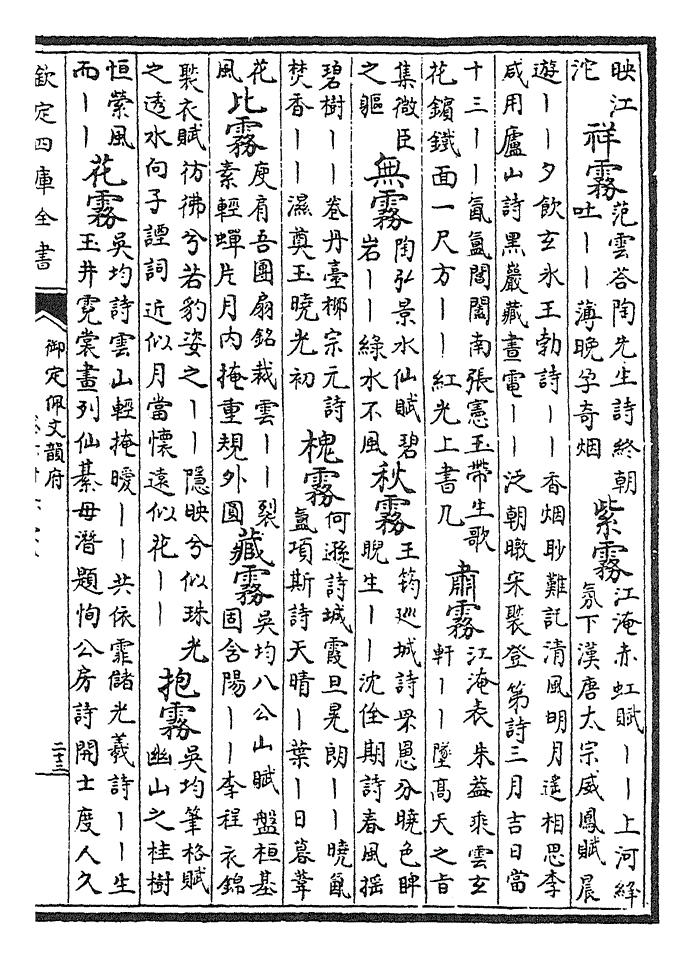 映江
沱
祥霧
范雲答陶先生詩終朝
吐丨丨薄晚孕奇烟
紫霧
江淹赤虹賦丨丨上河絳
氛下漢唐太宗威鳳賦晨
遊丨丨夕飲玄氷王勃詩丨丨香烟眇難託清風明月遙相思李
咸用廬山詩黑巖藏晝電丨丨泛朝暾宋褧登第詩三月吉日當
十三丨丨氤氲閶闔南張憲玉帶生歌
花鑌鐵面一尺方丨丨紅光上書几
肅霧
江淹表朱益乘雲玄
軒丨丨墜高天之旨
集微臣
之軀
無霧
陶弘景水仙賦碧
岩丨丨綠水不風
秋霧
王筠巡城詩罘罳分曉色睥
睨生丨丨沈佺期詩春風揺
碧樹丨丨卷丹臺栁宗元詩
焚香丨丨濕奠玉曉光初
槐霧
何遜詩城霞旦晃朗丨丨曉氤
氲項斯詩天晴丨葉丨日暮葦
花
風
比霧
庾肩吾團扇銘裁雲丨丨裂
素輕蟬片月内掩重規外圓
藏霧
吳均八公山賦盤桓基
固含陽丨丨李程衣錦
褧衣賦彷彿兮若豹姿之丨丨隱映兮似珠光
之透水向子諲詞近似月當懷遠似花丨丨
抱霧
吳均筆格賦
幽山之桂樹
恒縈風
而丨丨
花霧
吳均詩雲山輕掩曖丨丨共依霏儲光羲詩丨丨生
玉井霓裳畫列仙綦毋潛題恂公房詩開士度人久
欽定四庫全書
御定佩文韻府
二十三